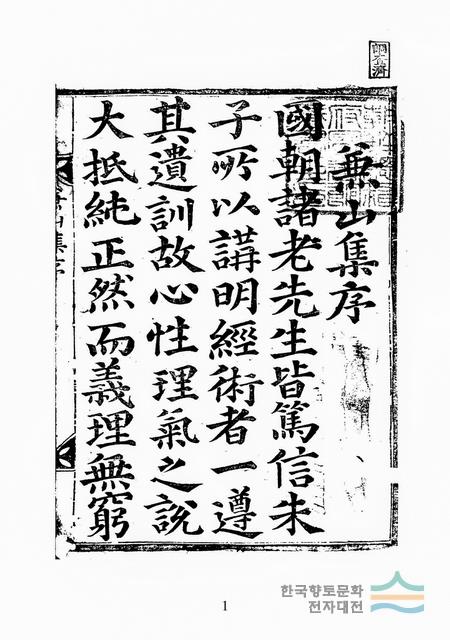 兼山集序
國朝諸老先生皆篤信朱
子所以講明經術者一遵
其遺訓故心性理氣之說
大抵純正然而義理無窮
1
한국향토문화
전자대전